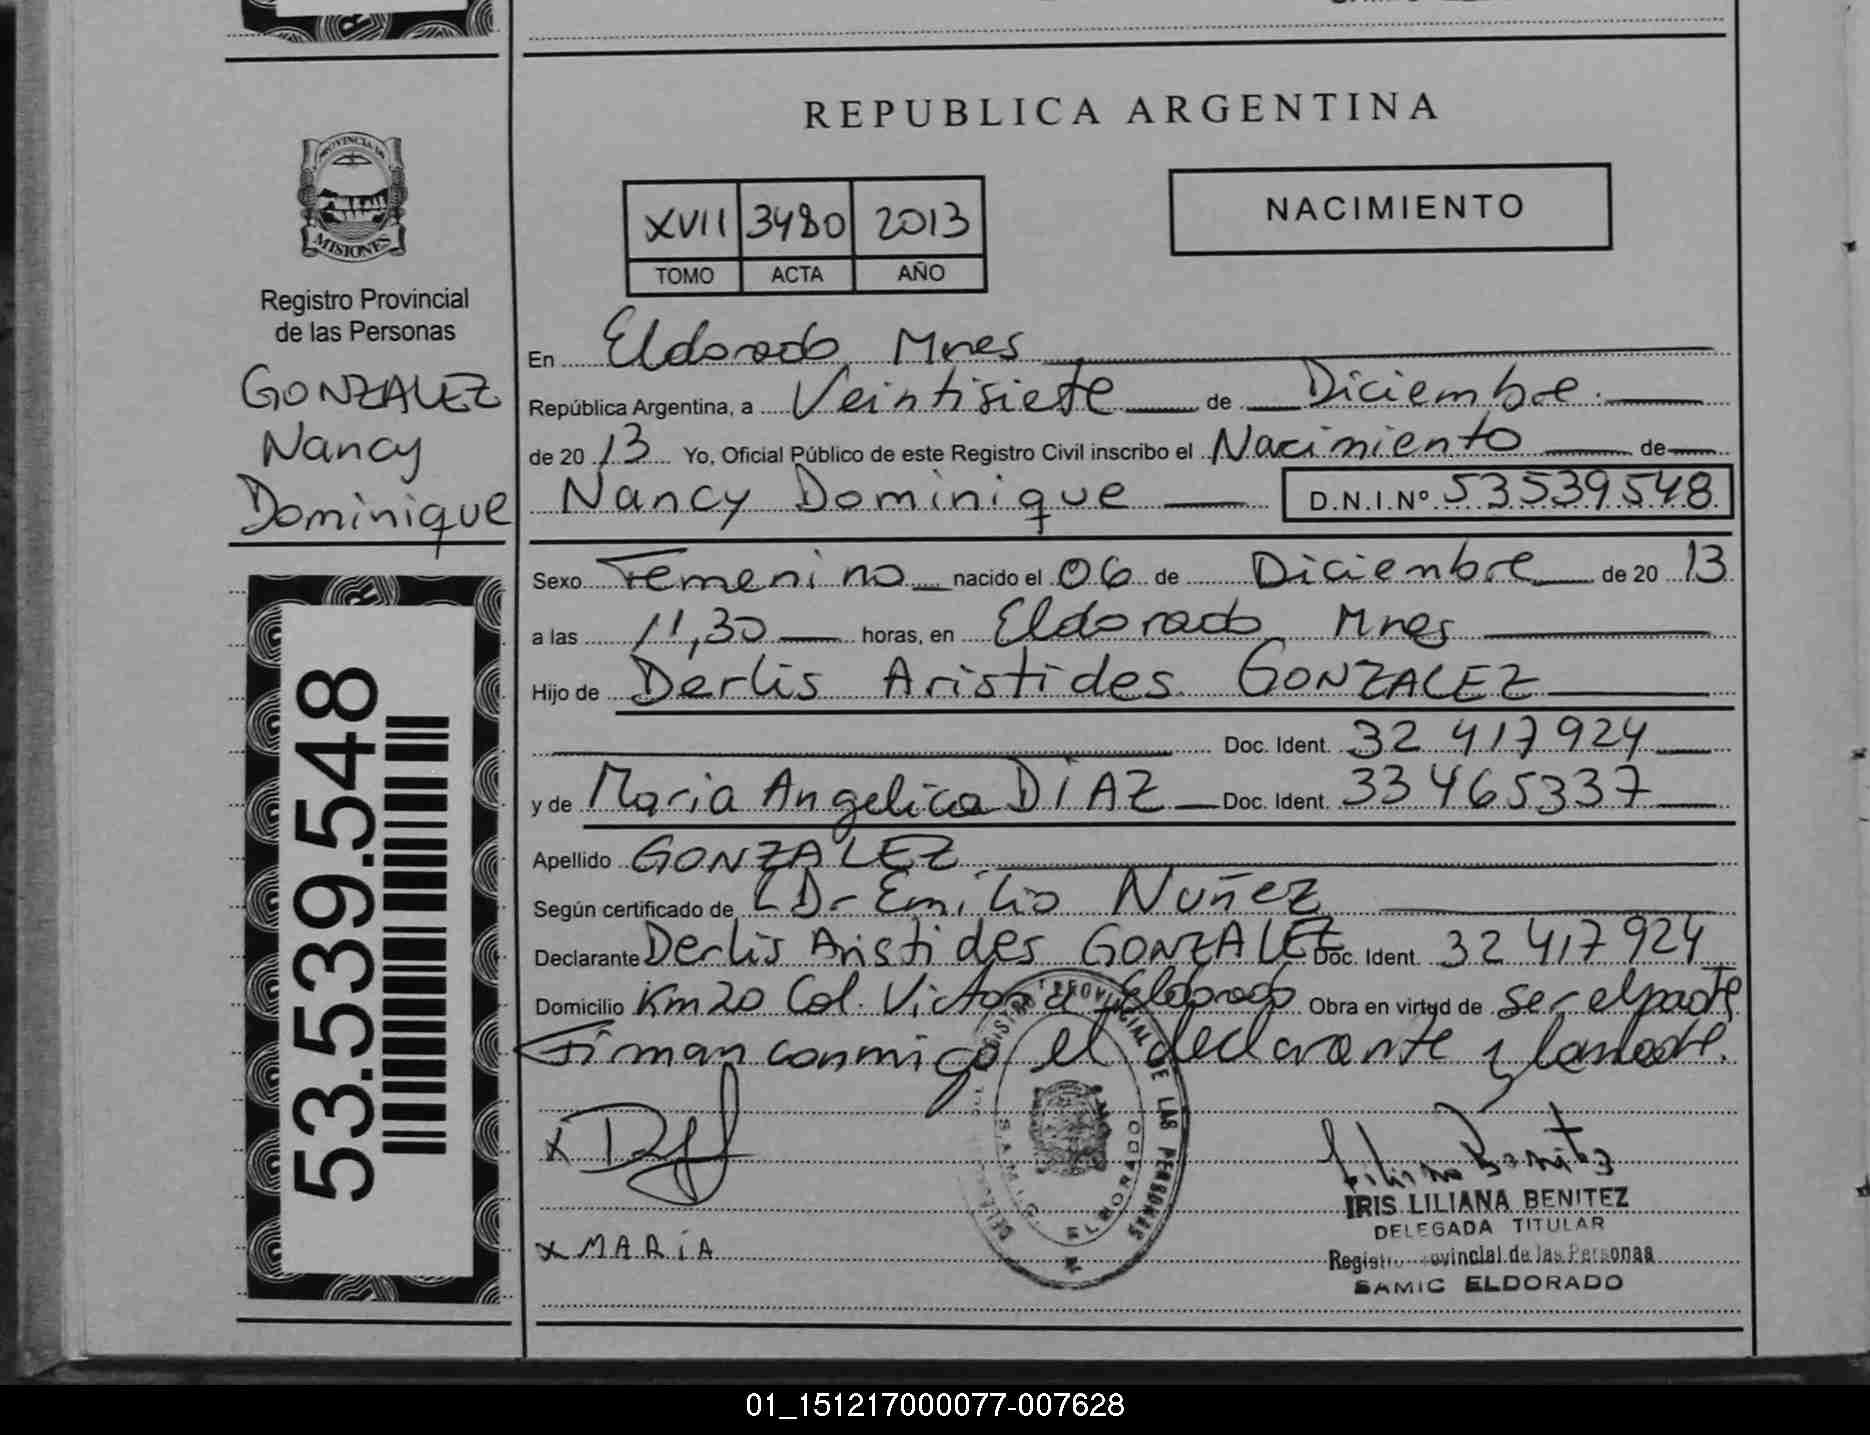 REPUBLICA ARGENTINA
PROVINCIA DE
MISIONES
Registro Provincial
de las Personas
GONZALEZ
Nancy
Dominique
53.539.548
XVII 3480 2013
TOMO ACTA AÑO
NACIMIENTO
En Eldorado Mnes
República Argentina, a Veintisiete de Diciembre
de 20 13 Yo, Oficial Público de este Registro Civil inscribo el Nacimiento de
Nancy Dominique D.N.I.Nº 53539548
Sexo Femenino nacido el 06 de Diciembre de 20 13
a las 11,30 horas, en Eldorado Mnes
Hijo de Derlis Aristides GONZALEZ
Doc. Ident. 32 417924
y de Maria Angelica DIAZ Doc. Ident. 33465337
Apellido GONZALEZ
Según certificado de Dr Emilio Nuñez
Declarante Derlis Aristides GONZALEZ Doc. Ident. 32 417924
Domicilio Km20 Col. Victoria Eldorado Obra en virtud de ser el padre
Firman conmigo el declarante y la madre.
REGISTRO PROVINCIAL DE LAS PERSONAS
S.A.M.I.C. ELDORADO
x MARiA
Liliana Benitez
IRIS LILIANA BENITEZ
DELEGADA TITULAR
Registro Provincial de las Personas
SAMIC ELDORADO
01_151217000077-007628